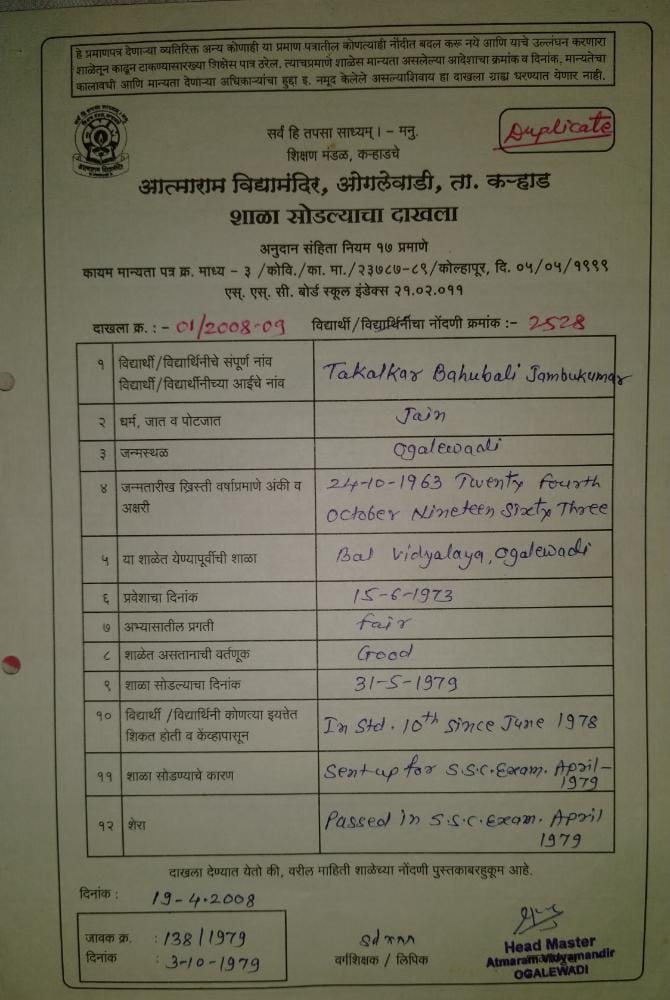 हे प्रमाणपत्र देणाऱ्या व्यतिरिक्त अन्य कोणाही या प्रमाण पत्रातील कोणत्याही नोंदीत बदल करू नये आणि याचे उल्लंघन करणारा
शाळेतून काढून टाकण्यासारख्या शिक्षेस पात्र ठरेल. त्याचप्रमाणे शाळेस मान्यता असलेल्या आदेशाचा क्रमांक व दिनांक, मान्यतेचा
कालावधी आणि मान्यता देणाऱ्या अधिकाऱ्यांचा हुद्दा इ. नमूद केलेले असल्याशिवाय हा दाखला ग्राह्य धरण्यात येणार नाही.
Duplicate
सर्वं हि तपसा साध्यम्। - मनु.
शिक्षण मंडळ, कऱ्हाडचे
आत्माराम विद्यामंदिर, ओगलेवाडी, ता. कऱ्हाड
शाळा सोडल्याचा दाखला
अनुदान संहिता नियम १७ प्रमाणे
कायम मान्यता पत्र क्र. माध्य - ३ /कोवि./का. मा./२३७८७-८९/कोल्हापूर, दि. ०५/०५/१९९९
एस्. एस्. सी. बोर्ड स्कूल इंडेक्स २१.०२.०११
दाखला क्र. : - 01/2008-09 विद्यार्थी/विद्यार्थिनीचा नोंदणी क्रमांक :- 2528
१ विद्यार्थी/विद्यार्थिनीचे संपूर्ण नांव Takalkar Bahubali Jambukumar
विद्यार्थी/विद्यार्थीनीच्या आईचे नांव
२ धर्म, जात व पोटजात Jain
३ जन्मस्थळ Ogalewadi
४ जन्मतारीख ख्रिस्ती वर्षाप्रमाणे अंकी व 24-10-1963 Twenty Fourth
अक्षरी October Nineteen Sixty Three
५ या शाळेत येण्यापूर्वीची शाळा Bal Vidyalaya, Ogalewadi
६ प्रवेशाचा दिनांक 15-6-1973
७ अभ्यासातील प्रगती Fair
८ शाळेत असतानाची वर्तणूक Good
९ शाळा सोडल्याचा दिनांक 31-5-1979
१० विद्यार्थी /विद्यार्थिनी कोणत्या इयत्तेत In Std. 10th Since June 1978
शिकत होती व केंव्हापासून
११ शाळा सोडण्याचे कारण Sent up for S.S.C. Exam. April-
1979
१२ शेरा Passed in S.S.C. Exam. April
1979
दाखला देण्यात येतो की, वरील माहिती शाळेच्या नोंदणी पुस्तकाबरहुकूम आहे.
दिनांक : 19-4-2008
जावक क्र. : 138/1979
दिनांक : 3-10-1979
वर्गशिक्षक / लिपिक
Head Master
Atmaram Vidyamandir
OGALEWADI